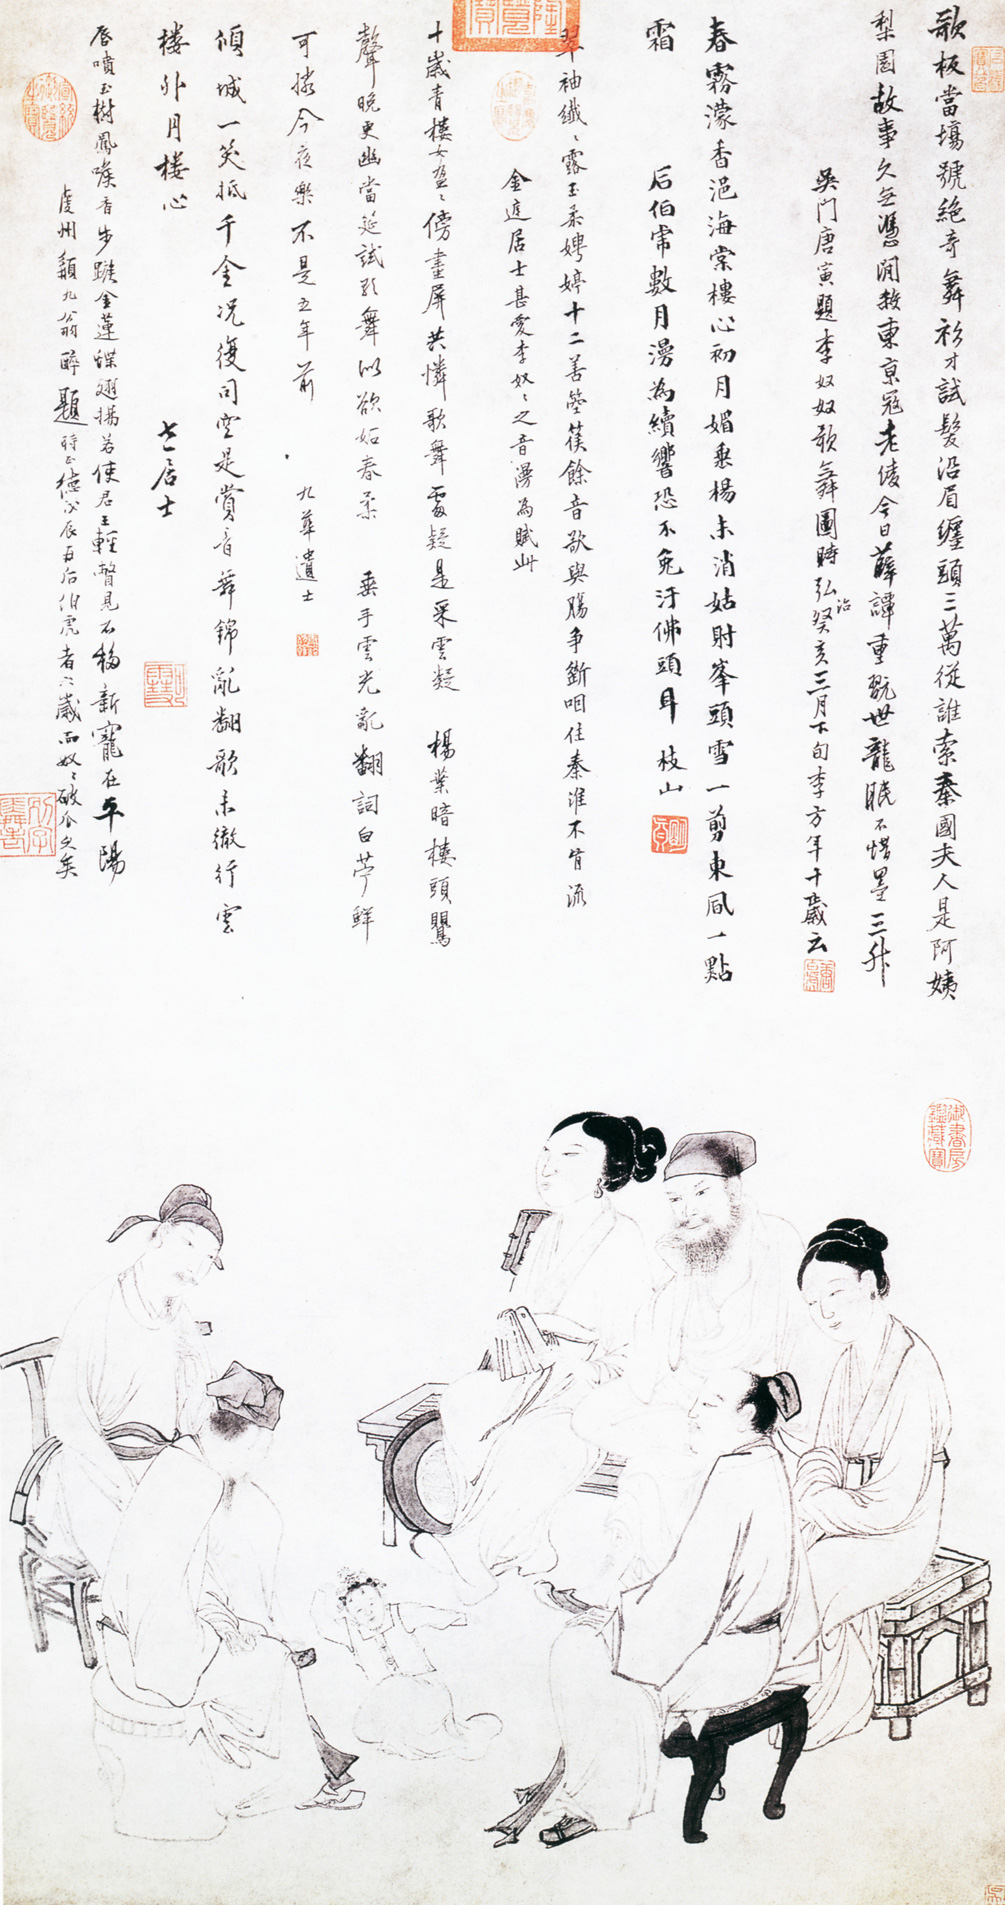 歌板當場號絶奇舞衫才試髮沿眉纏頭三萬從誰索秦國夫人是阿姨
梨園故事久無憑閒教東京冠老陵今日薛譚重翫世龍眠不惜墨三升
吳門唐寅題李奴奴歌舞圖時弘治癸亥三月下旬李方年十歲云
春霧濛香浥海棠樓心初月媚垂楊未消姑射峯頭雪一剪東風一點
霜
后伯常數月漫為續響恐不免汙佛頭耳 枝山
翠袖纖纖露玉柔娉婷十二善箜篌餘音欲與腸爭斷咽住秦淮不肯流
金庭居士甚愛李奴奴之音漫為賦此
十歲青樓女盈盈傍畫屏共憐歌舞處疑是采雲凝 楊葉暗樓頭鸎
聲晚更幽當筵試歌舞似欲妬春柔 垂手雲光亂翻詞白苧鮮
可憐今夜樂不是五年前 九華遺士
傾城一笑抵千金況復司空是賞音舞錦亂翻歌未徹行雲
樓外月樓心
七居士
唇噴玉樹鳳喉香步蹴金蓮蝶翅揚若使君王輕瞥見不移新寵在平陽
虔州九翁醉題時正德戊辰五后伯虎者六歲而奴奴破瓜久矣
乾隆御覽之寶
御書房鑑藏寶